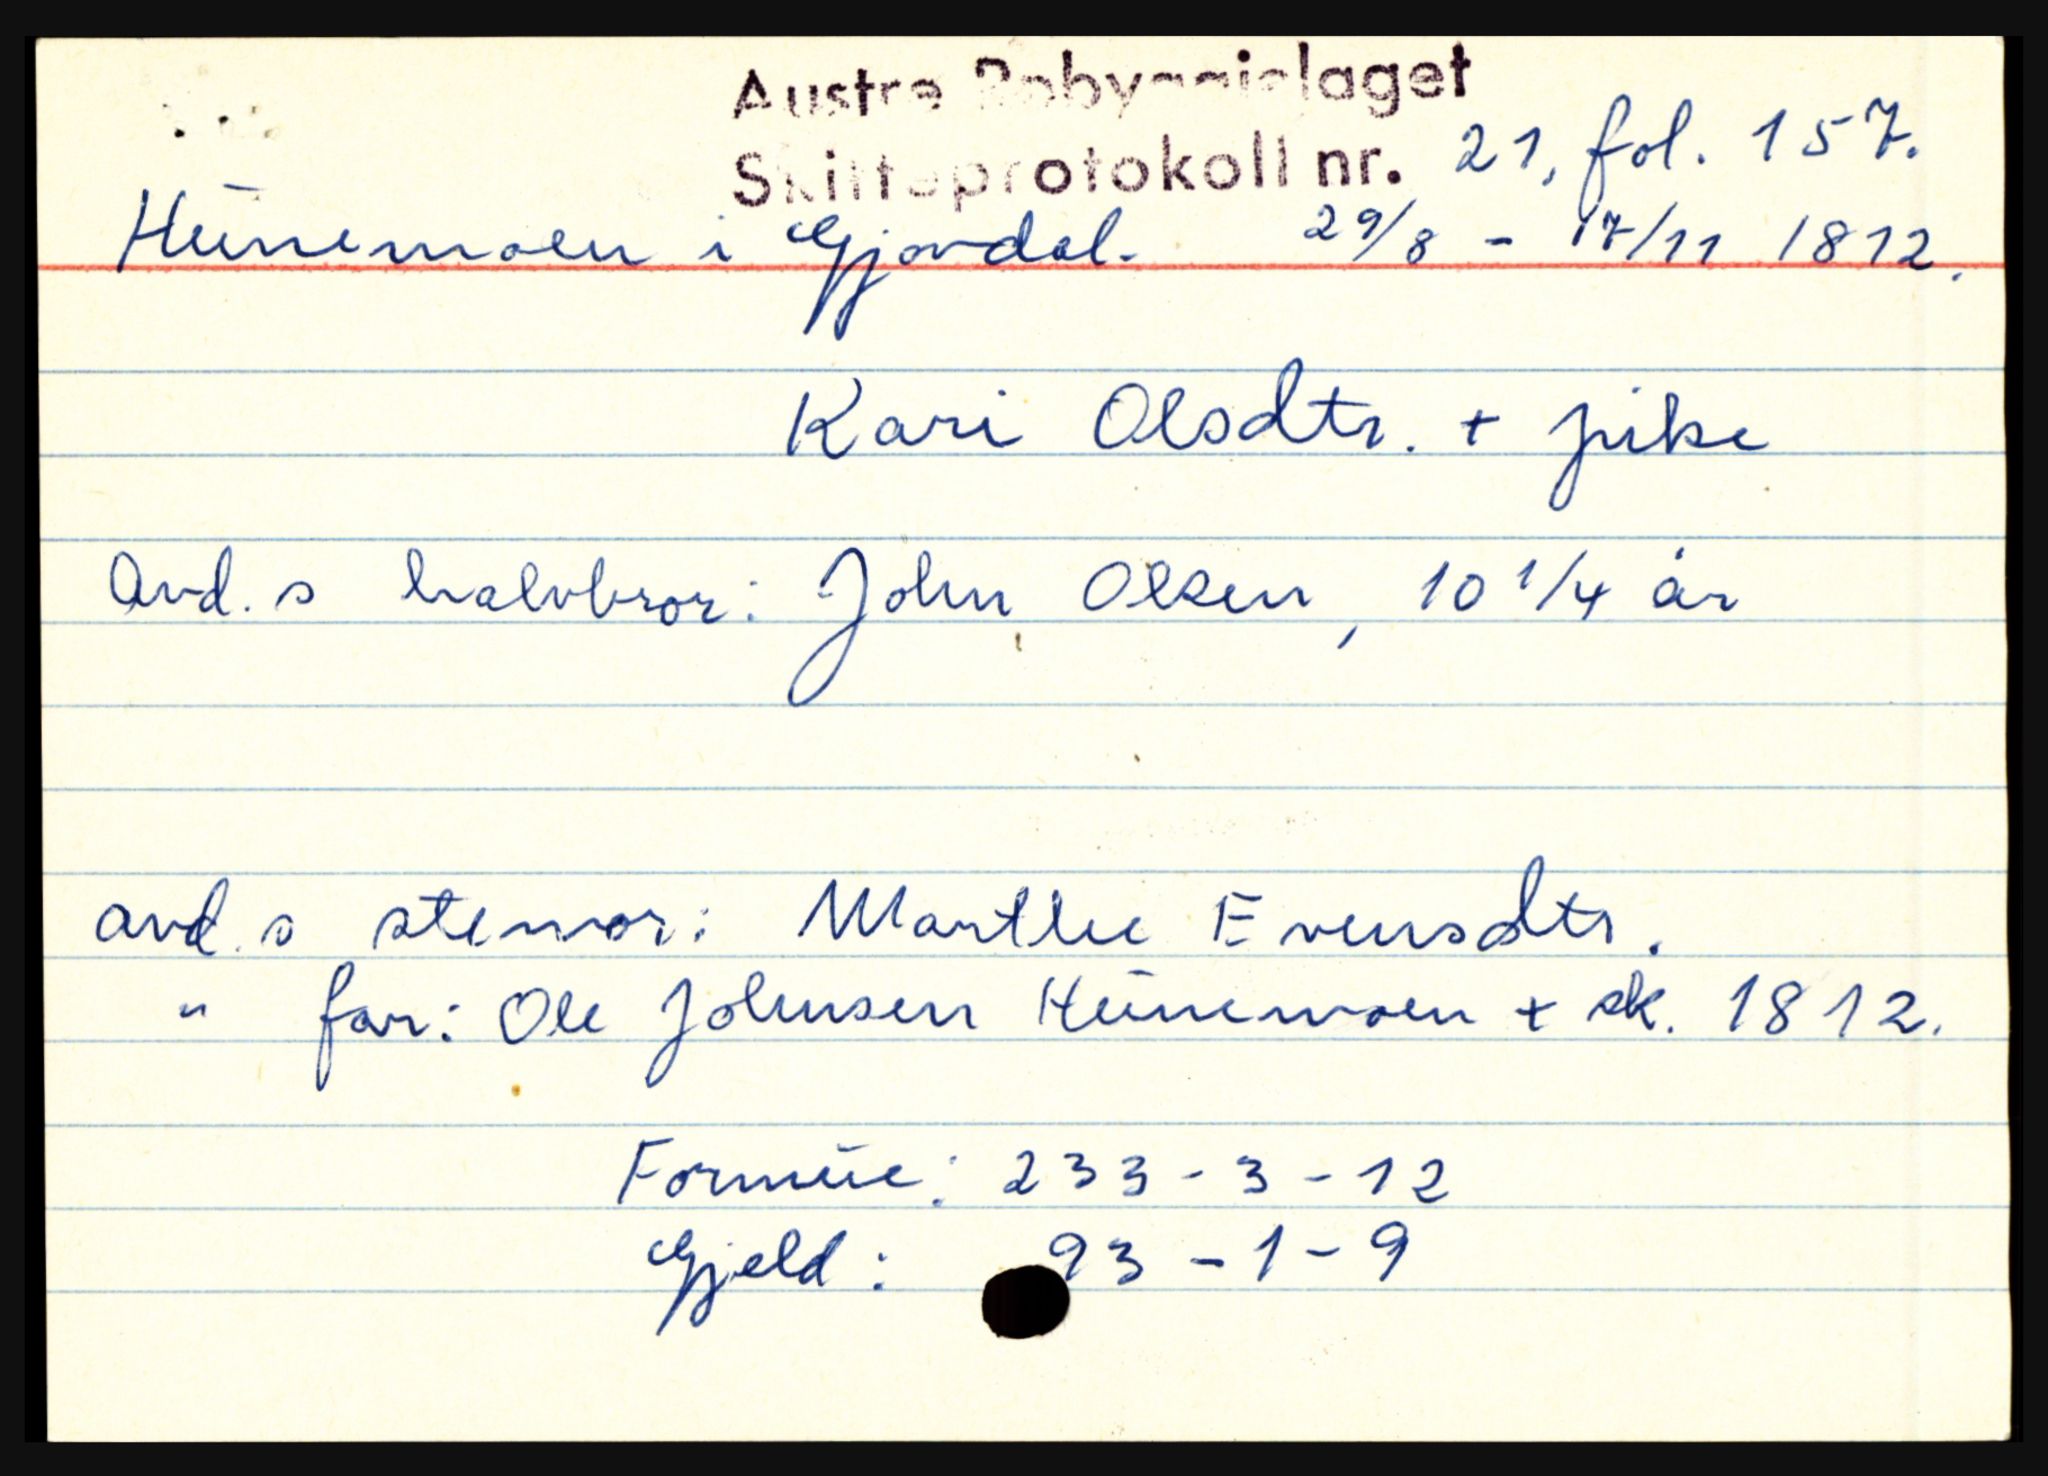 Austre Robyggjelaget
Skifteprotokoll nr. 21, fol. 157.
Hunemoen i Gjøvdal. 29/8 - 17/11 1812.
Kari Olsdtr. + pike
Avd. s halvbror: John Olsen, 10 1/4 år
avd. s stemor: Marthe Evensdtr.
" far: Ole Johnsen Hunemoen + sk. 1812.
Formue: 233-3-12
Gjeld: 93-1-9